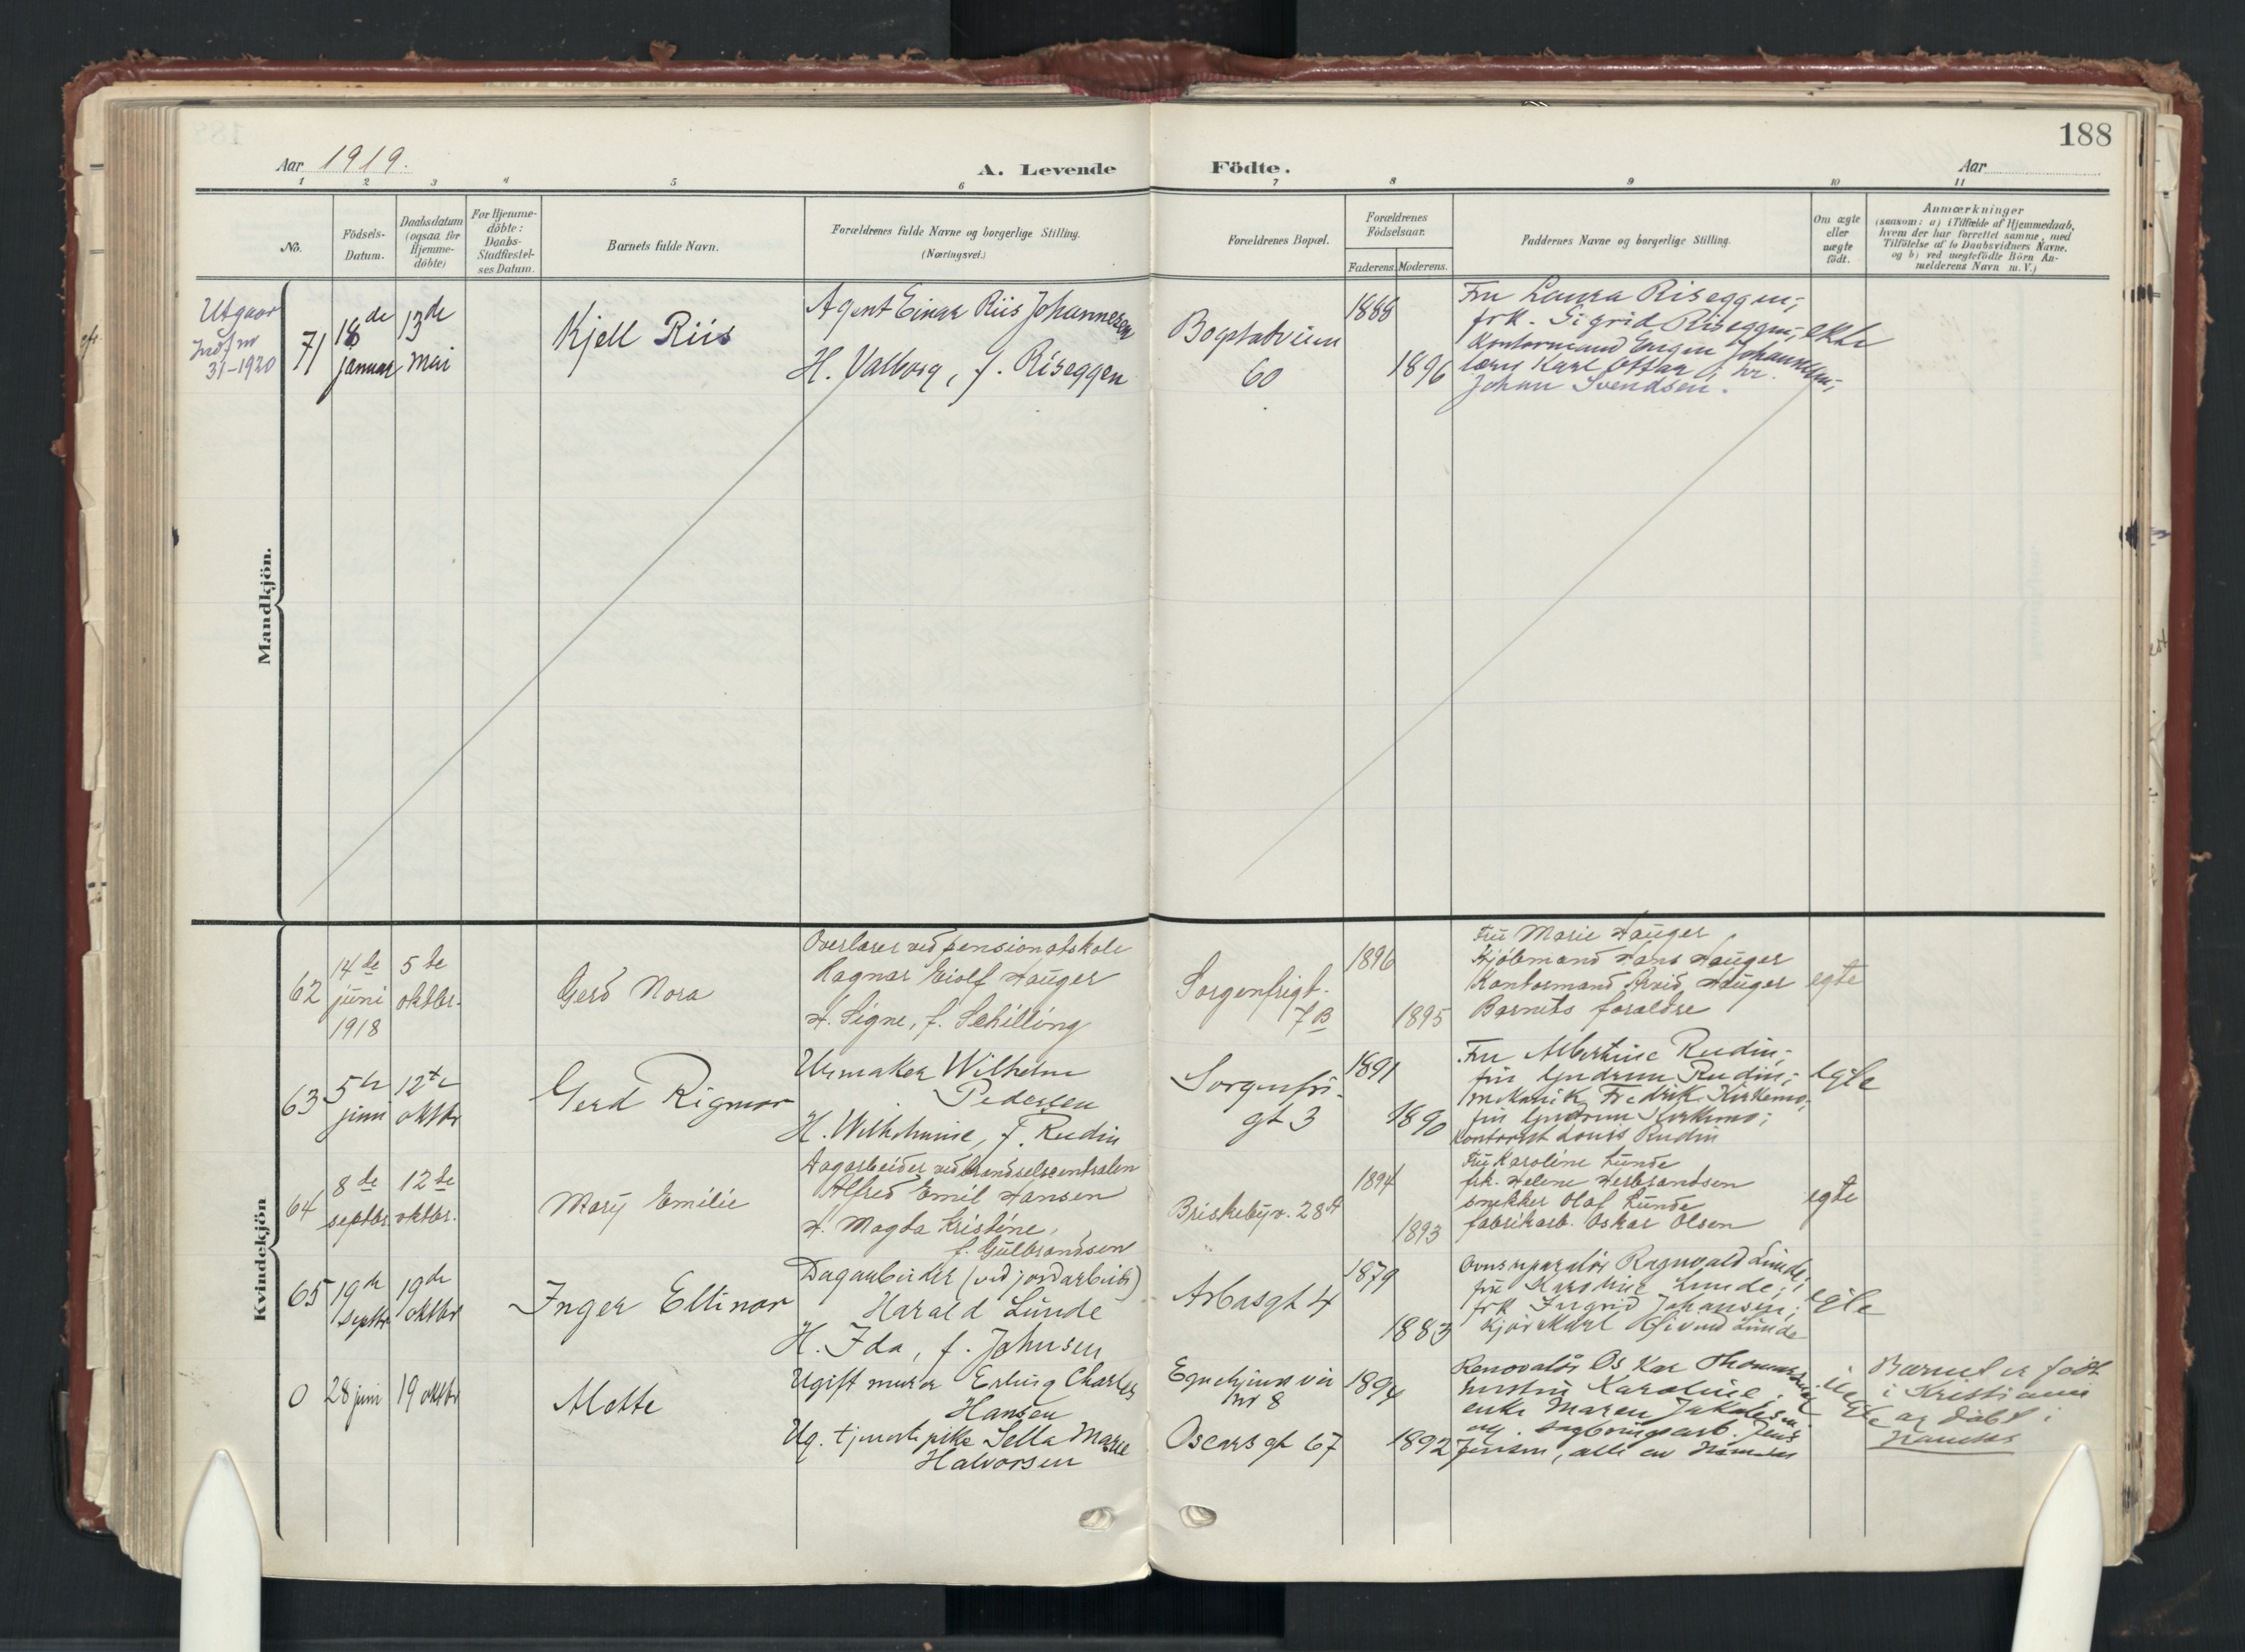 188
Aar 1919.
A. Levende Födte.
Aar
1 2 3 4 5 6 7 8 9 10 11
No.
Födsels-
Datum.
Daabsdatum
(ogsaa for
Hjemme-
döbte)
For Hjemme-
döbte:
Daabs-
Stadfæstel-
ses Datum.
Barnets fulde Navn.
Forældrenes fulde Navne og borgerlige Stilling.
(Næringsvei.)
Forældrenes Bopæl.
Forældrenes
Födselsaar.
Faderens. Moderens.
Faddernes Navne og borgerlige Stilling.
Om ægte
eller
uægte
födt.
Anmærkninger
(saasom: a) i Tilfælde af Hjemmedaab,
hvem der har forrettet samme, med
Tilföielse af to Daabsvidners Navne.
og b) ved uegtefödte Börn An-
melderens Navn m. V.)
Mandkjön.
Utgaar
Indf nr
31-1920
71
18 de
januar
13 de
mai
Kjell Riis
Agent Einar Riis Johannesen
H. Valborg, f. Riseggen
Bogstadveien
60
1888
1896
Fru Laura Riseggen;
frk. Sigrid Riseggen;
Kontormand Eugen Johannesen;
Karl Ottar
Johan Svendsen.
ekte
Kvindekjön
62
14 de
juni
1918
5 te
oktbr.
Gerd Nora
Overlærer ved pensionatskole
Ragnar Eiolf Hauger
H. Signe, f. Schilling
Sorgenfrigt.
7 B
1896
1895
Fru Marie Hauger
Kjöbmand Hans Hauger
Kontormand Arvid Hauger
Barnets forældre
egte
63
5 te
juni
12 te
oktbr
Gerd Rigmor
Urmaker Wilhelm
Pedersen
H. Wilhelmine, f. Rudin
Sorgenfri.
gt 3
1891
1890
Fru Albertine Rudin;
fru Gudrun Rudin;
mekanik. Fredrik Kirkemo;
fru Gudrun Kirkemo;
Kontorist Louis Rudin
egte
64
8 de
septbr.
12 te
oktbr.
Mary Emilie
Dagarbeider ved brændselscentralen
Alfred Emil Hansen
H. Magda Kristine,
f. Gulbrandsen
Briskebyv. 28 A
1894
1893
Fru Karoline Lunde
frk. Helene Herbrandsen
snekker Olaf Lunde
fabrikarb. Oskar Olsen
egte
65
19 de
septbr
19 de
oktbr
Inger Ellinor
Dagarbeider (ved jordarbeide)
Harald Lunde
H. Ida, f. Johnsen
Arbosgt 4
1879
1883
Ovnsreparatör Ragnvald Lunde;
fru Karoline Lunde;
frk Ingrid Johansen;
Kjörekarl Eivind Lunde
egte
0
28 juni
19 oktbr
Mette
Ugift murer Erling Charles
Hansen
Ug. tjenestepike Sella Marie
Halvorsen
nr 8
Oscars gt 67
1894
1892
Renovatör Oskar Thomassen;
hustru Karoline;
enke Maren Jakobsen;
ug. Jens
Jensen, alle av Hamar
uegte
Barnet er födt
i Kristiania
og döbt i